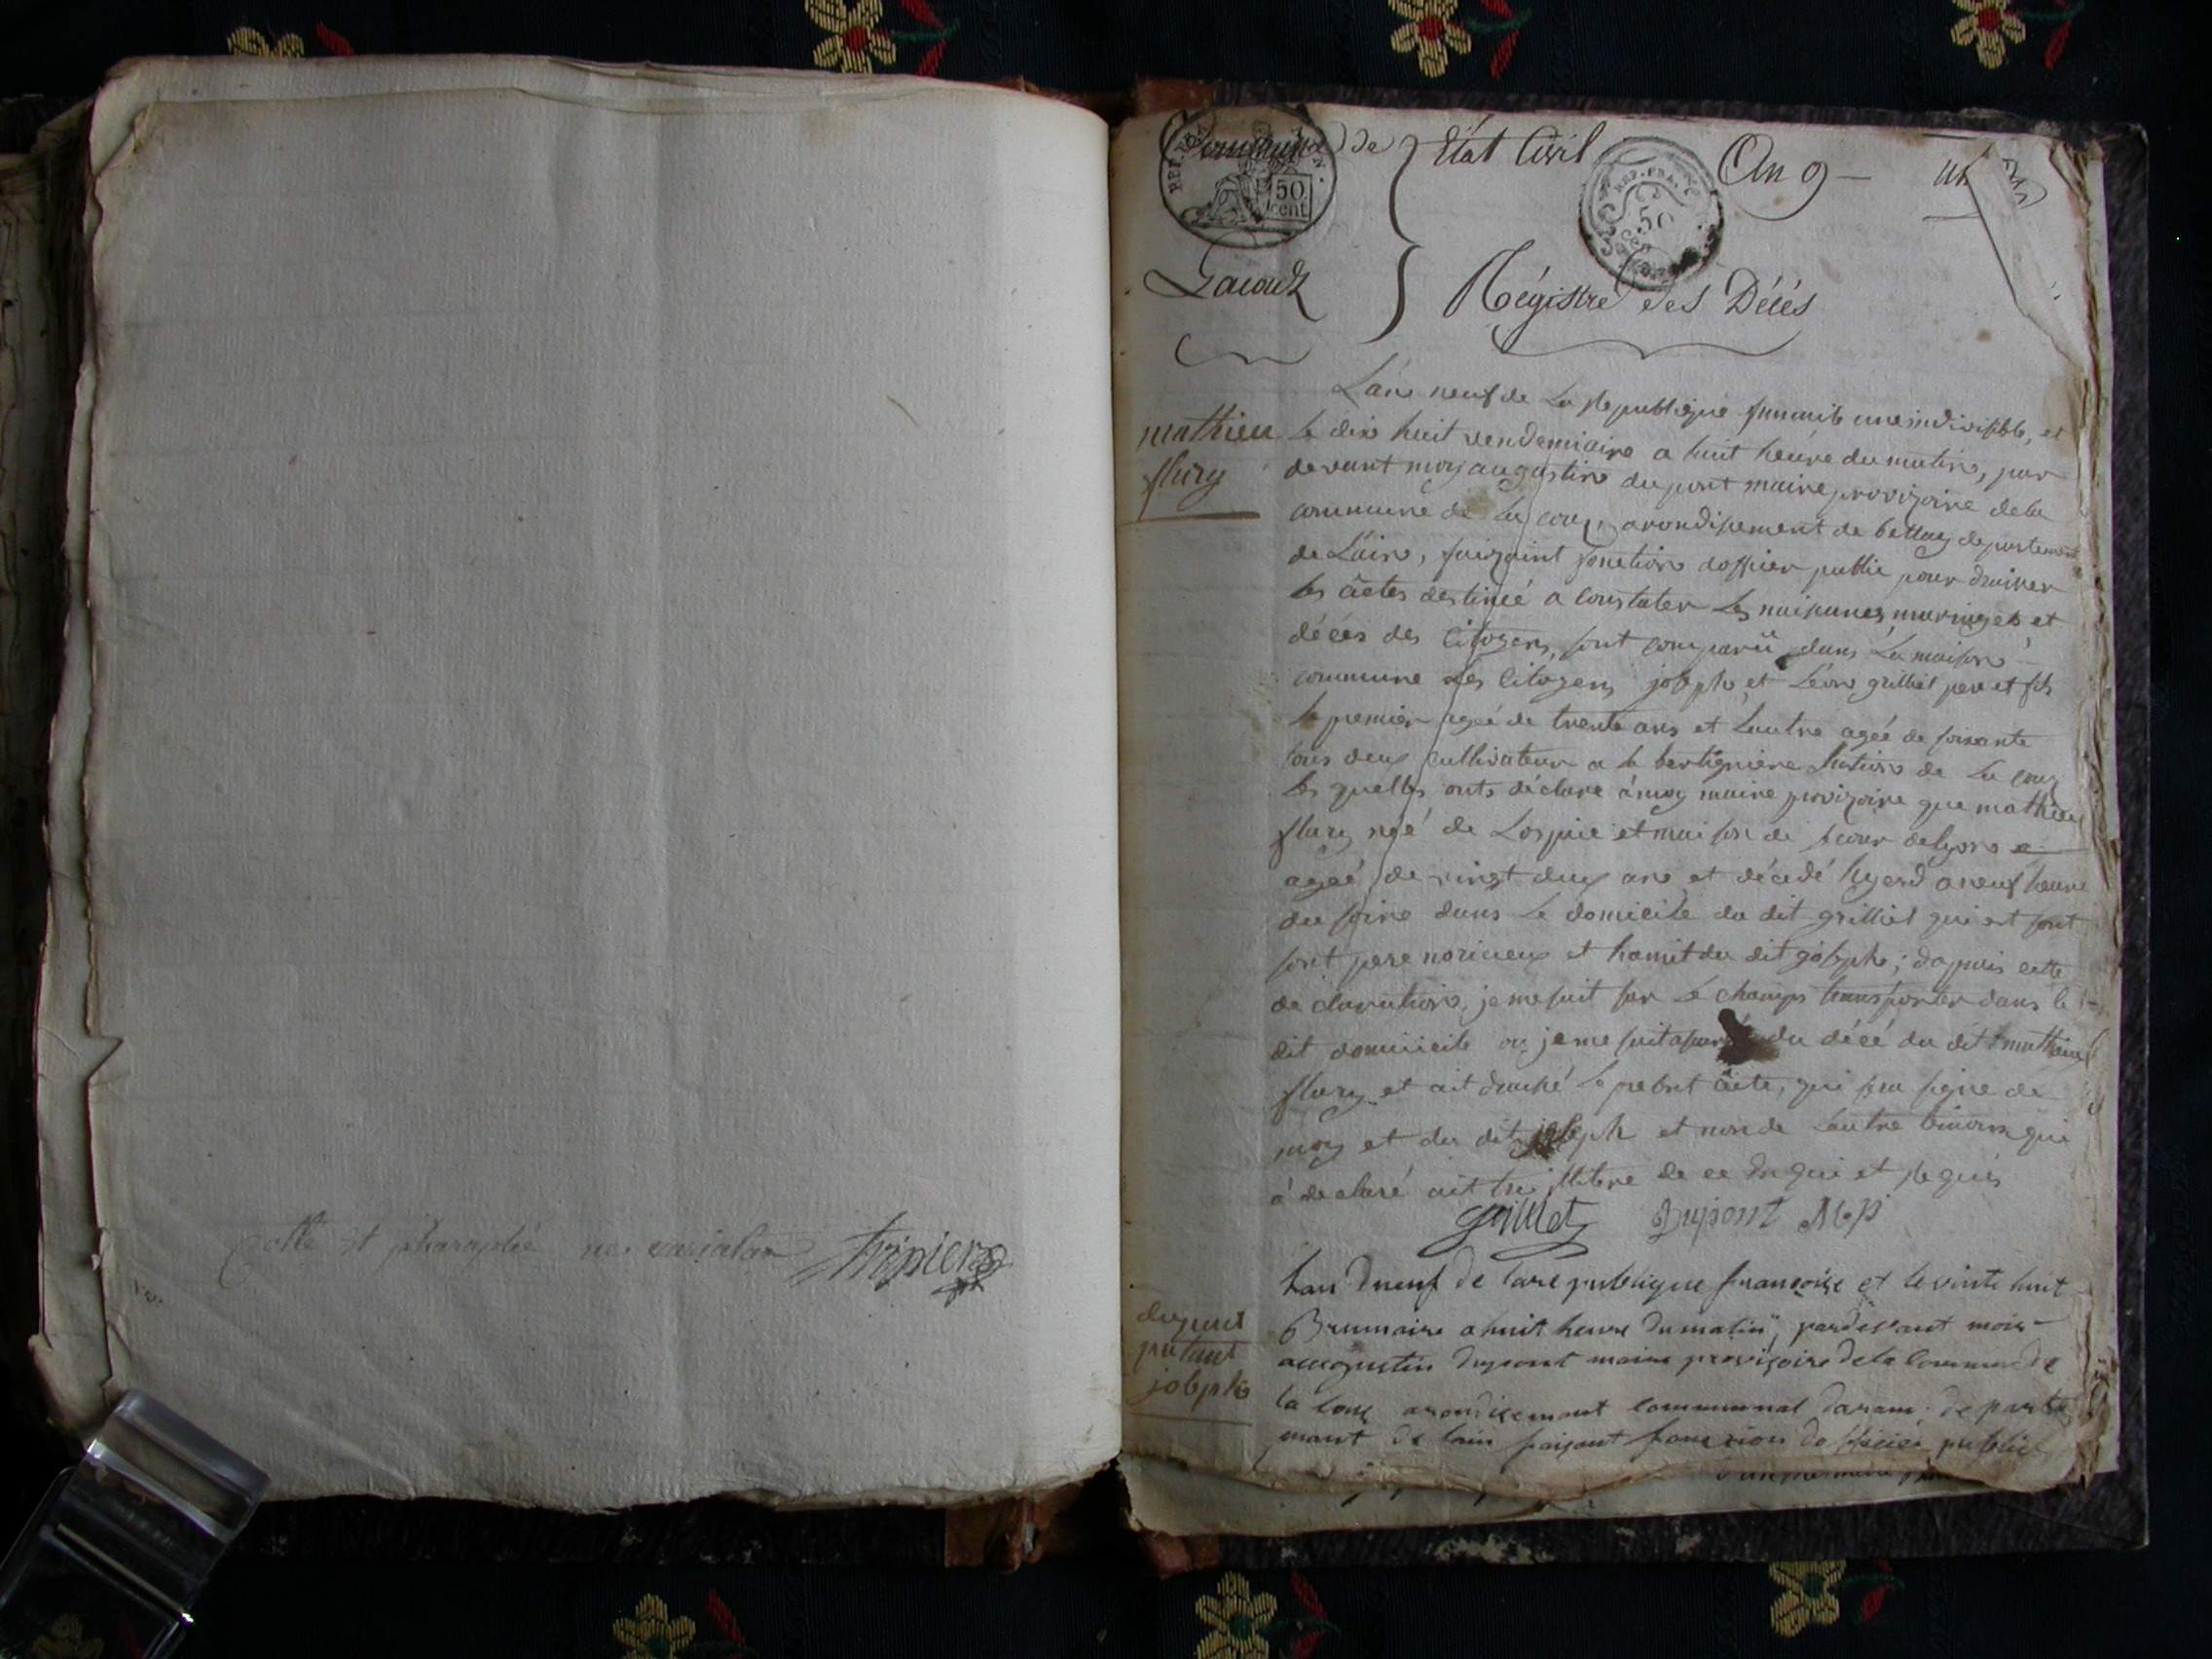 Cotté et pharaphé ne varialur Tripier
Commune de Etat Civil An 9
REP. FRA.
50
cent
REP. FRA.
50
cen
Lacoux Régistre des Décés
mathieu
flury
L'an neuf de La Republique francoite une indivisible, et
le dix huit vendemiaire a huit heure du matin, par
devant moy augustin dupont maire provizoire de la
commune de La coux, arondisement de bellay departement
de L'ain, faizaint fonction doffisier public pour
les âctes destineé a constater Les naisances, mariages et
décés des Citoyens, sont comparü dans La maison
commune Les Citoyens joseph et Léon grilliet pere et fils
le premier ageé de trente ans et Lautre ageé de soixante
tous deux cultivateur a la bertigniere section de La coux
les quelles onts déclare a moy maire provizoire que mathieu
flury neé de Lospice et maison de secour de lyon
ageé de vingt deux ans et décédé hyerd a neuf heure
du soire dans Le domicile du dit grilliet qui est sont
sont pere noricieux et hamit du dit joseph; dapuis cette
declaration, je me suit sur Le champs transporter dans le
dit domicicile ou je me suit du décé du dit mathieu
flury et ait le presnt âcte, qui sera signe de
moy et du dit joseph et non de Lautre temoins qui
à declaré
grilliet Dupont M p
dupont
jobph
Lan dneuf de lare publique francoise et le vinte huit
Brumaire a huit heure du matin, pardevant moi
auogustin dupont maire provisoire de la Commune de
la Coux arondisemant communal darant departe
mant de lain faisant fonxcion doffisiei publick